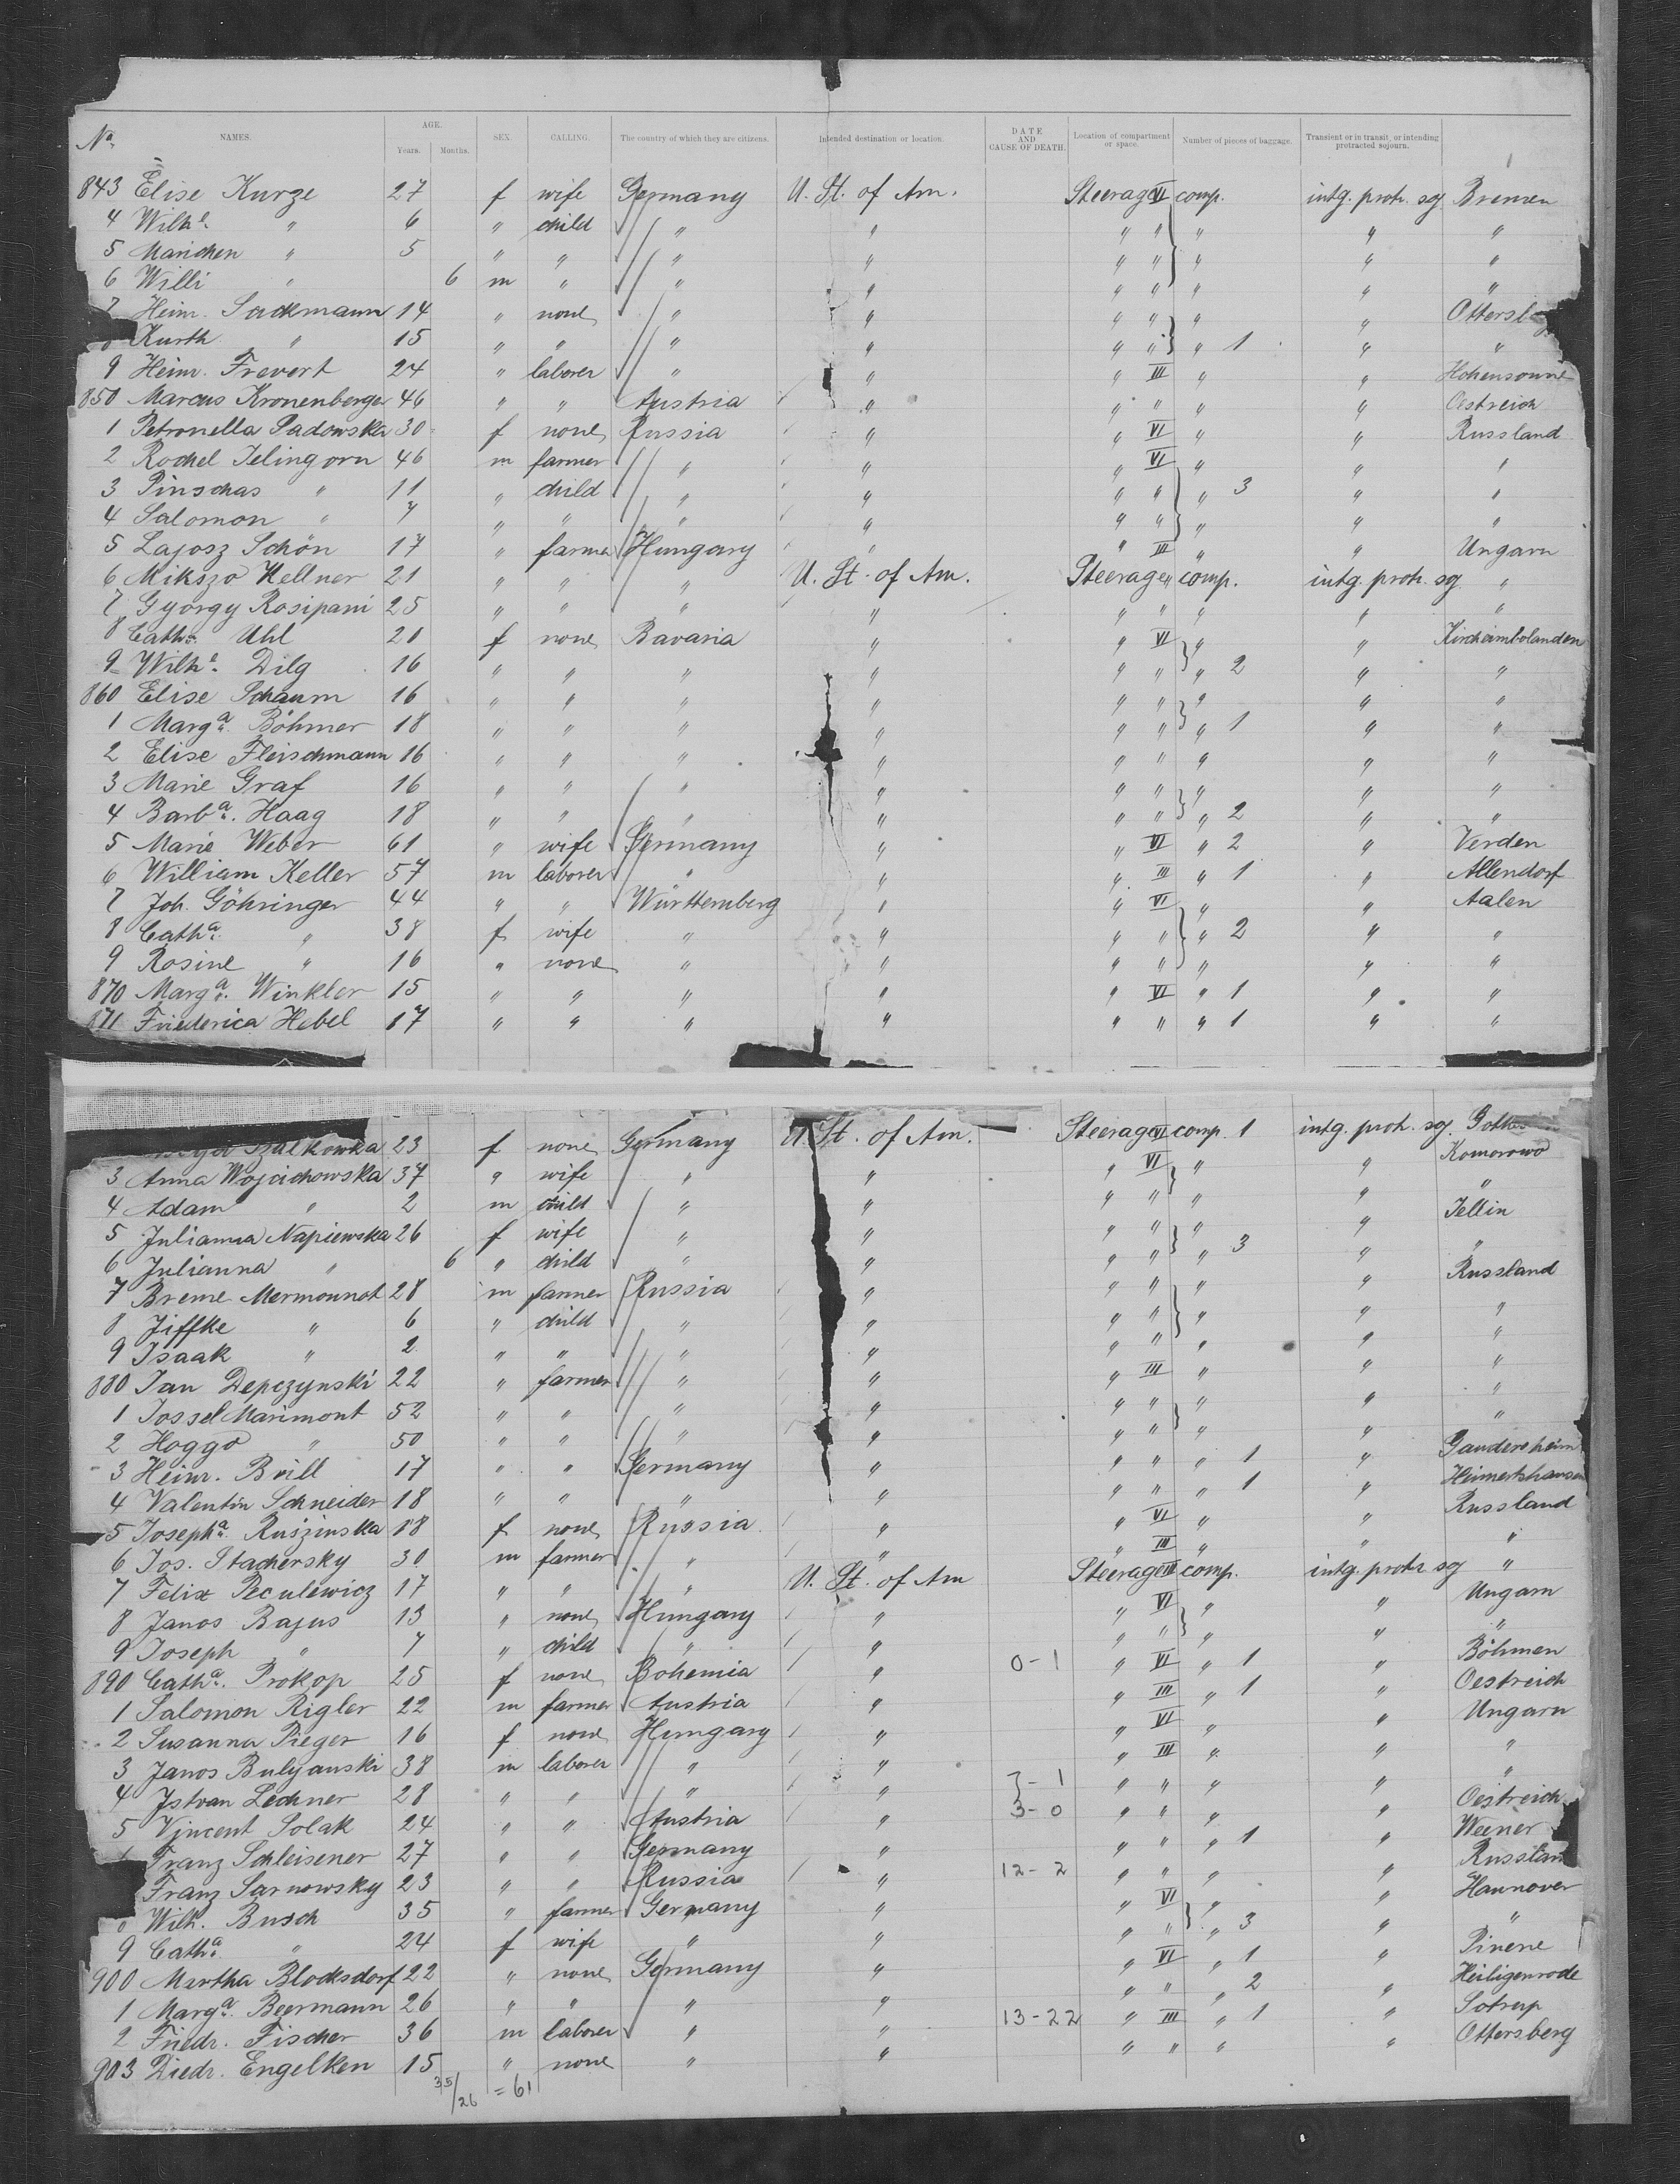 No. NAMES. AGE. Years. Months. SEX. CALLING. The country of which they are citizens. Intended destination or location. DATE AND CAUSE OF DEATH. Location of compartment or space. Number of pieces of baggage. Transient or in transit, or intending protracted sojourn.
843 Elise Kurze 27 f wife Germany U. St. of Am. Steerage VI comp. intg. protr. soj. Bremen
4 Wilhe. " 6 " child " " " " " " "
5 Marichen " 5 " " " " " " " " "
6 Willi " 6 m " " " " " " " "
7 Heinr. Sackmann 14 " none " " " " " "
Kurth " 15 " " " " " " " 1 " "
9 Heinr. Frevert 24 " laborer " " " III " " Hohensonne
850 Marcus Kronenberger 46 " " Austria " " " " " Oestreich
1 Petronella Padowska 30 f none Russia " " VI " " Russland
2 Rochel Jelingorn 46 m farmer " " " VI " " "
3 Pinschas " 11 " child " " " " " 3 " "
4 Salomon " 7 " " " " " " " " "
5 Lajosz Schön 17 " farmer Hungary " " III " " Ungarn
6 Mikszo Kellner 21 " " " U. St. of Am. Steerage " comp. intg. protr. soj. "
7 György Rosipani 25 " " " " " " " " "
8 Catha. Uhl 20 f none Bavaria " " VI " " Kircheimbolanden
9 Wilhe. Dilg 16 " " " " " " " 2 " "
860 Elise Schaum 16 " " " " " " " " "
1 Marga. Böhmer 18 " " " " " " " 1 " "
2 Elise Fleischmann 16 " " " " " " " " "
3 Marie Graf 16 " " " " " " " " "
4 Barba. Haag 18 " " " " " " " 2 " "
5 Marie Weber 61 " wife Germany " " VI " 2 " Verden
6 William Keller 57 m laborer " " " III " 1 " Allendorf
7 Joh. Göhringer 44 " " Württemberg " " VI " " Aalen
8 Catha. " 38 f wife " " " " " 2 " "
9 Rosine " 16 " none " " " " " " "
870 Marga. Winkler 15 " " " " " VI " 1 " "
871 Friederica Hebel 17 " " " " " " " 1 " "
Szalkowka 23 f none Germany U. St. of Am. Steerage VI comp. 1 intg. protr. soj.
3 Anna Wojcichowska 37 " wife " " " VI " " Komorowo
4 Adam " 2 m child " " " " " " "
5 Julianna Napiewska 26 f wife " " " " " " Jellin
6 Julianna " 6 " child " " " " " 3 " "
7 Breme Mermonnot 28 m farmer Russia " " " " " Russland
8 Jiffke " 6 " child " " " " " " "
9 Isaak " 2 " " " " " " " " "
880 Jan Depczynski 22 " farmer " " " III " " "
1 Jossel Marimont 52 " " " " " " " " "
2 Hoggo " 50 " " " " " " " " "
3 Heinr. Brill 17 " " Germany " " " " 1 " Gandersheim
4 Valentin Schneider 18 " " " " " " " 1 " Heimertshausen
5 Josepha. Ruszinska 18 f none Russia " " VI " " Russland
6 Jos. Stachersky 30 m farmer " " " III " " "
7 Felix Peculewicz 17 " " " U. St. of Am Steerage III comp. intg. protr. soj "
8 Janos Bajus 13 " none Hungary " " VI " " Ungarn
9 Joseph " 7 " child " " " " " " "
890 Catha. Prokop 25 f none Bohemia " 0-1 " VI " 1 " Böhmen
1 Salomon Rigler 22 m farmer Austria " " III " 1 " Oestreich
2 Susanna Pieger 16 f none Hungary " " VI " " Ungarn
3 Janos Bulyanski 38 m laborer " " " III " " "
4 Istvan Lechner 28 " " " " }-1 " " " " "
5 Vincent Solak 24 " " Austria " 3-0 " " " " Oestreich
Franz Schleisener 27 " " Germany " " " " 1 " Weener
Franz Sarnowsky 23 " " Russia " 12-2 " " " " Russland
8 Wilh. Busch 35 " farmer Germany " " VI " " Hannover
9 Catha. " 24 f wife " " " " " 3 " "
900 Martha Blocksdorf 22 " none Germany " " VI " 1 "
1 Marga. Beermann 26 " " " " " " " 2 " Heiligenrode
2 Friedr. Fischer 36 m laborer " " 13-22 " III " 1 " Sotrup
903 Diedr. Engelken 15 " none " " " " " " Ottersberg
35/26 = 61